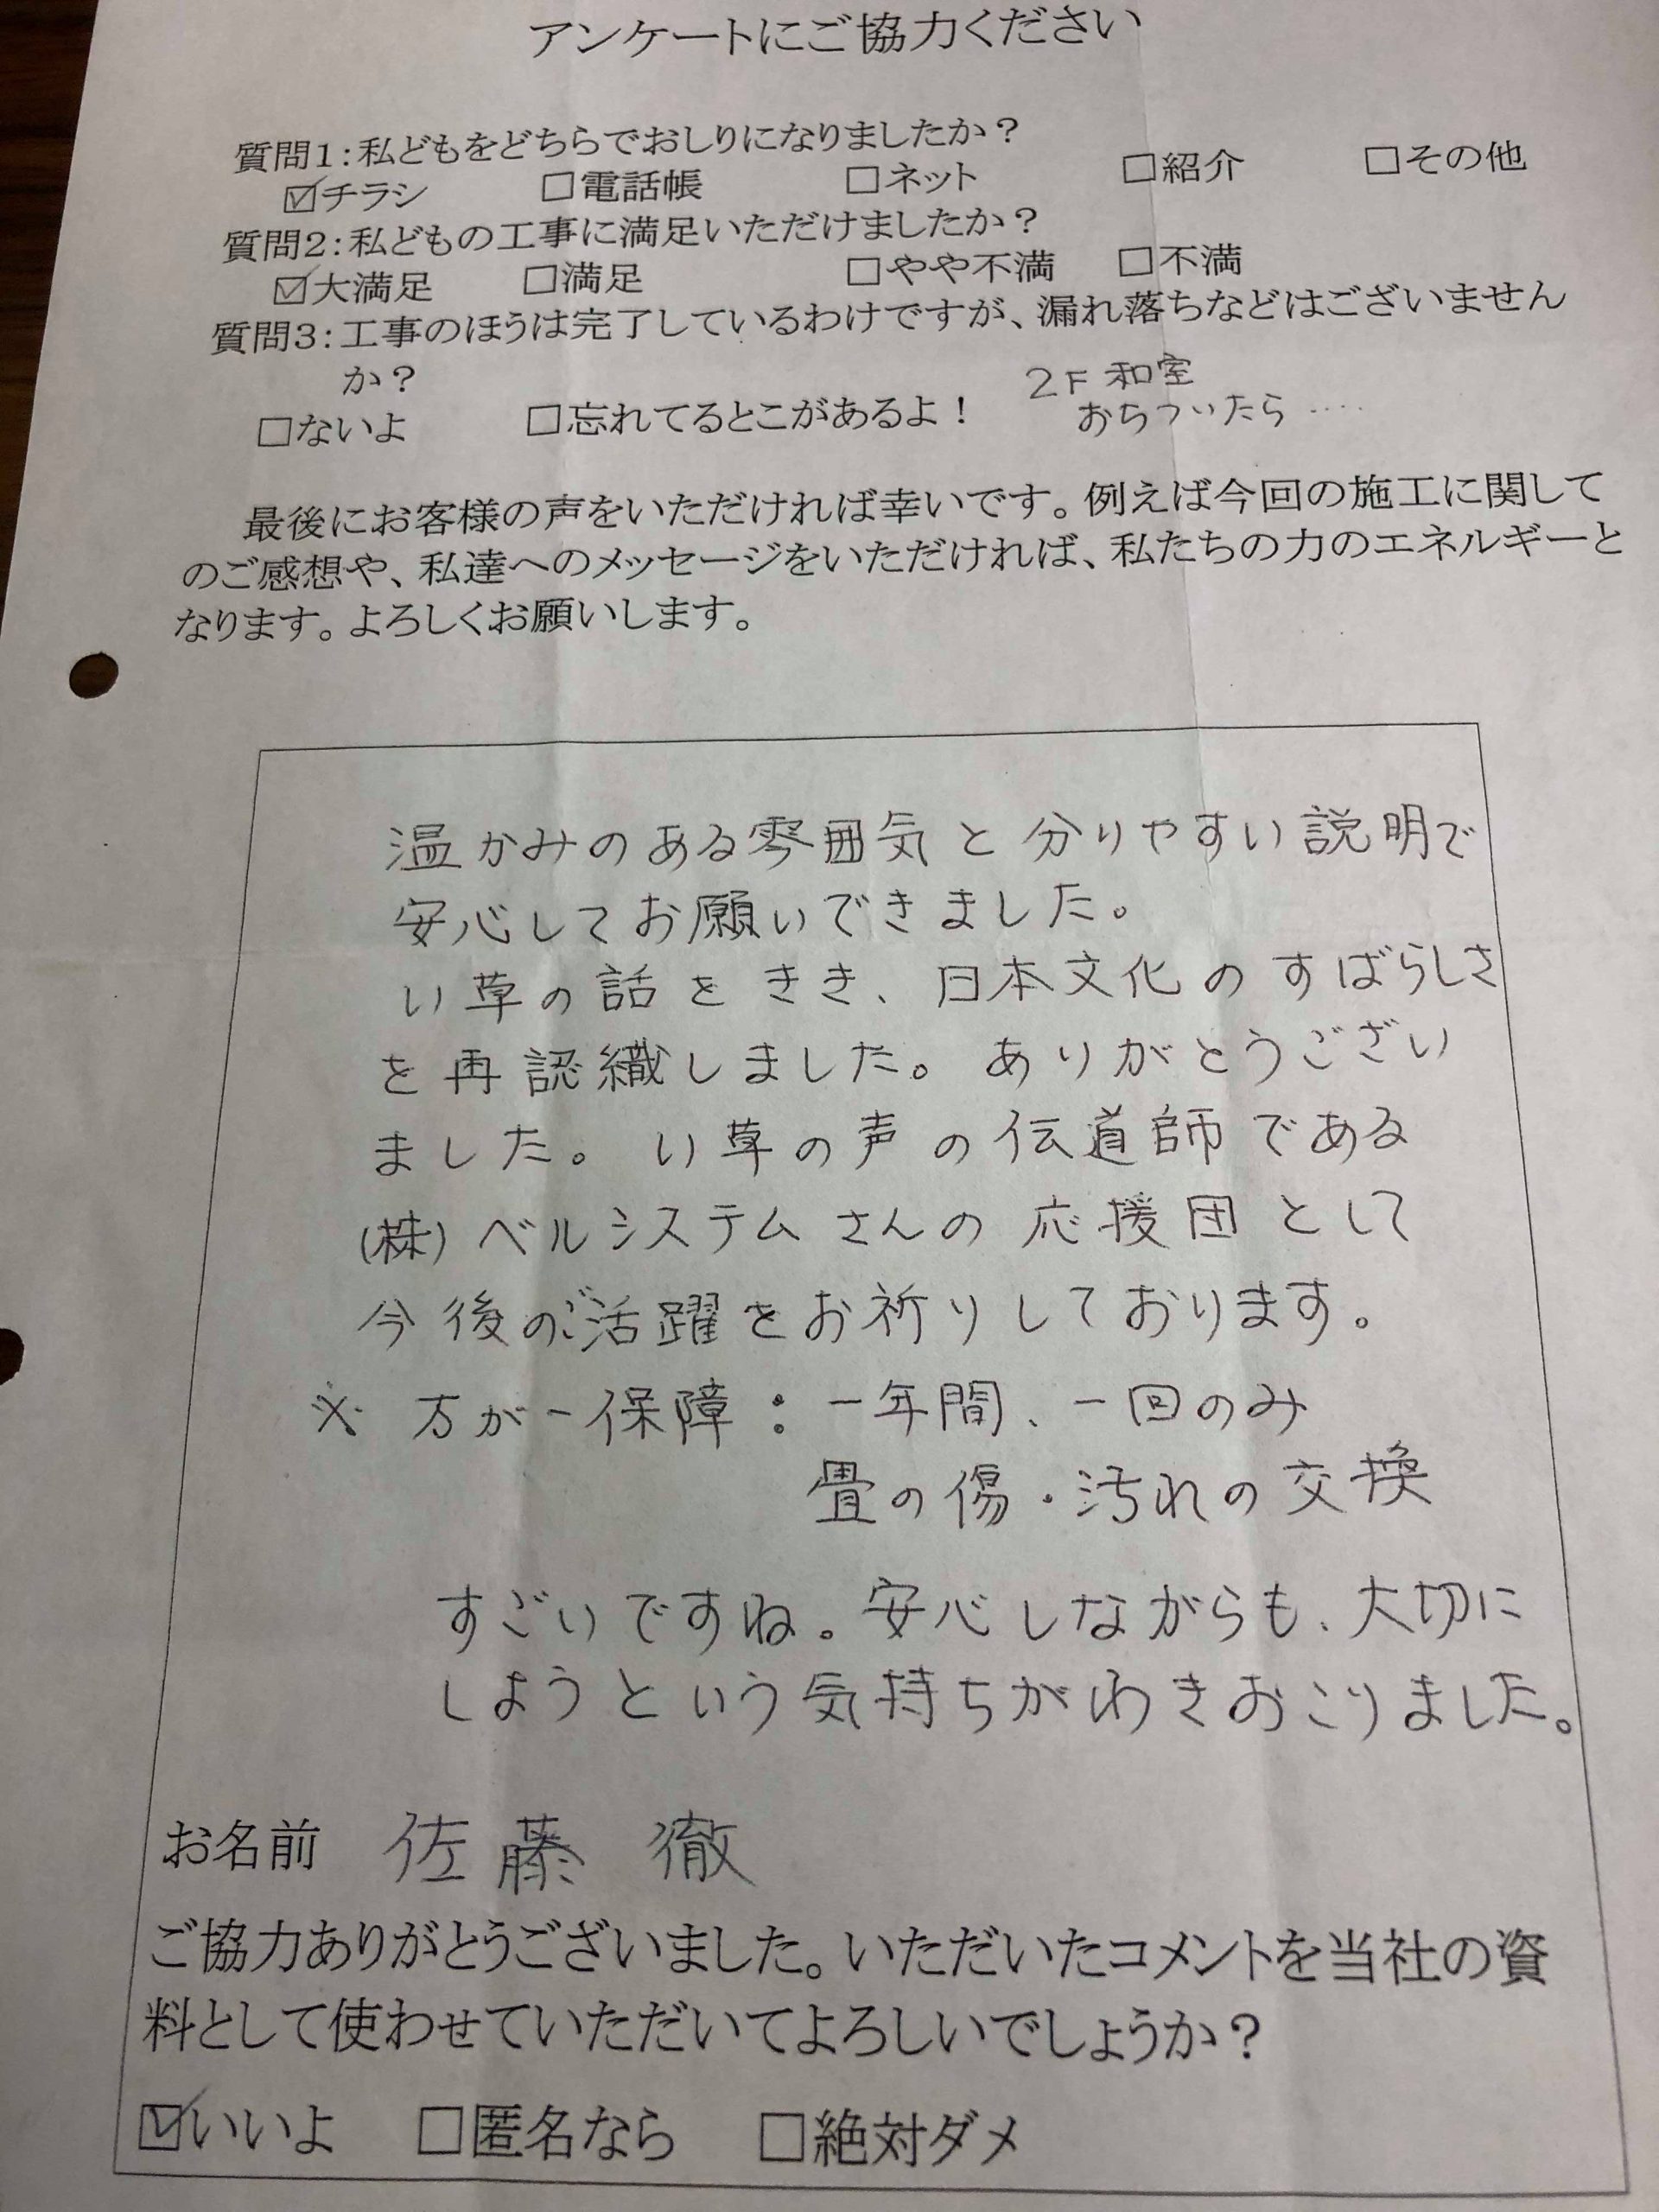 アンケートにご協力ください
質問1:私どもをどちらでおしりになりましたか？
☑チラシ □電話帳 □ネット □紹介 □その他
質問2:私どもの工事に満足いただけましたか？
☑大満足 □満足 □やや不満 □不満
質問3:工事のほうは完了しているわけですが、漏れ落ちなどはございません
か？
2F 和室
□ないよ □忘れてるとこがあるよ！ おちついたら‥‥
最後にお客様の声をいただければ幸いです。例えば今回の施工に関して
のご感想や、私達へのメッセージをいただければ、私たちの力のエネルギーと
なります。よろしくお願いします。
温かみのある雰囲気と分りやすい説明で
安心してお願いできました。
い草の話をきき、日本文化のすばらしさ
を再認織しました。ありがとうござい
ました。い草の声の伝道師である
(株)ベルシステムさんの応援団として
今後のご活躍をお祈りしております。
※ 万が一保障：一年間、一回のみ
畳の傷・汚れの交換
すごいですね。安心しながらも、大切に
しようという気持ちがわきおこりました。
お名前 佐藤 徹
ご協力ありがとうございました。いただいたコメントを当社の資
料として使わせていただいてよろしいでしょうか？
☑いいよ □匿名なら □絶対ダメ